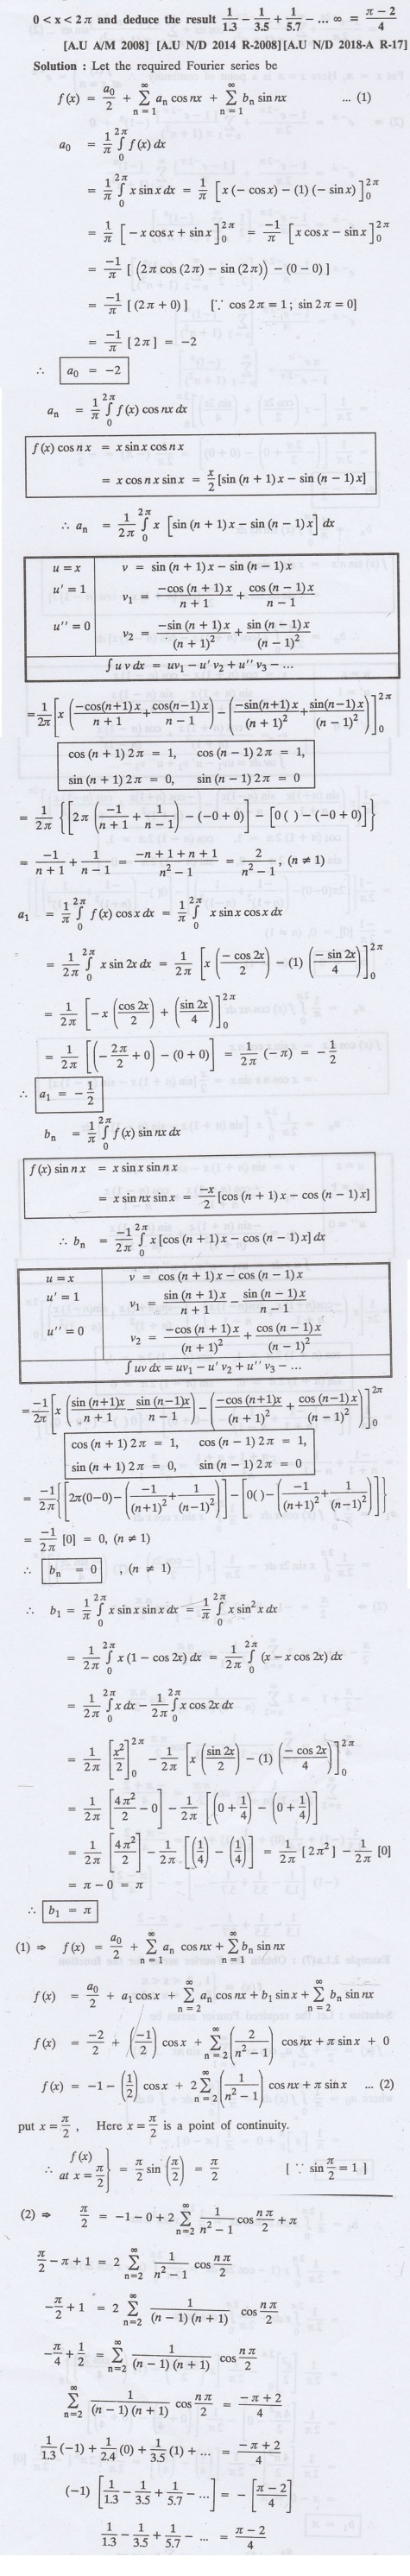 0 < x < 2π and deduce the result 1/1.3 − 1/3.5 + 1/5.7 − ... ∞ = (π − 2)/4
[A.U A/M 2008] [A.U N/D 2014 R-2008] [A.U N/D 2018-A R-17]
Solution : Let the required Fourier series be
f(x) = a₀/2 + Σ_{n=1}^{∞} aₙ cos nx + Σ_{n=1}^{∞} bₙ sin nx ... (1)
a₀ = 1/π ∫₀^{2π} f(x) dx
= 1/π ∫₀^{2π} x sin x dx = 1/π [x (− cos x) − (1) (− sin x)]₀^{2π}
= 1/π [− x cos x + sin x]₀^{2π} = −1/π [x cos x − sin x]₀^{2π}
= −1/π [ (2π cos (2π) − sin (2π)) − (0 − 0) ]
= −1/π [ (2π + 0) ] [∵ cos 2π = 1 ; sin 2π = 0]
= −1/π [2π] = −2
∴ a₀ = −2
aₙ = 1/π ∫₀^{2π} f(x) cos nx dx
f(x) cos n x = x sin x cos n x
= x cos n x sin x = x/2 [sin (n + 1) x − sin (n − 1) x]
∴ aₙ = 1/2π ∫₀^{2π} x [sin (n + 1) x − sin (n − 1) x] dx
u = x v = sin (n + 1) x − sin (n − 1) x
u' = 1 v₁ = −cos (n + 1) x/(n + 1) + cos (n − 1) x/(n − 1)
u'' = 0 v₂ = −sin (n + 1) x/(n + 1)² + sin (n − 1) x/(n − 1)²
∫ u v dx = uv₁ − u' v₂ + u'' v₃ − ...
= 1/2π [x (−cos(n+1) x/(n + 1) + cos(n−1) x/(n − 1)) − (−sin(n+1) x/(n + 1)² + sin(n−1) x/(n − 1)²)]₀^{2π}
cos (n + 1) 2π = 1, cos (n − 1) 2π = 1,
sin (n + 1) 2π = 0, sin (n − 1) 2π = 0
= 1/2π {[2π (−1/(n + 1) + 1/(n − 1)) − (−0 + 0)] − [0 ( ) − (−0 + 0)]}
= −1/(n + 1) + 1/(n − 1) = (−n + 1 + n + 1)/(n² − 1) = 2/(n² − 1) , (n ≠ 1)
a₁ = 1/π ∫₀^{2π} f(x) cos x dx = 1/π ∫₀^{2π} x sin x cos x dx
= 1/2π ∫₀^{2π} x sin 2x dx = 1/2π [x (− cos 2x/2) − (1) (− sin 2x/4)]₀^{2π}
= 1/2π [− x (cos 2x/2) + (sin 2x/4)]₀^{2π}
= 1/2π [(− 2π/2 + 0) − (0 + 0)] = 1/2π (− π) = − 1/2
∴ a₁ = − 1/2
bₙ = 1/π ∫₀^{2π} f(x) sin nx dx
f(x) sin n x = x sin x sin n x
= x sin nx sin x = −x/2 [cos (n + 1) x − cos (n − 1) x]
∴ bₙ = −1/2π ∫₀^{2π} x [cos (n + 1) x − cos (n − 1) x] dx
u = x v = cos (n + 1) x − cos (n − 1) x
u' = 1 v₁ = sin (n + 1) x/(n + 1) − sin (n − 1) x/(n − 1)
u'' = 0 v₂ = −cos (n + 1) x/(n + 1)² + cos (n − 1) x/(n − 1)²
∫ uv dx = uv₁ − u' v₂ + u'' v₃ − ...
= −1/2π [x (sin (n+1)x/(n + 1) − sin (n−1)x/(n − 1)) − (−cos (n+1)x/(n + 1)² + cos (n−1) x/(n − 1)²)]₀^{2π}
cos (n + 1) 2π = 1, cos (n − 1) 2π = 1,
sin (n + 1) 2π = 0, sin (n − 1) 2π = 0
= −1/2π {[2π(0−0) − (−1/(n+1)² + 1/(n−1)²)] − [0( ) − (−1/(n+1)² + 1/(n−1)²)]}
= −1/2π [0] = 0, (n ≠ 1)
∴ bₙ = 0 , (n ≠ 1)
∴ b₁ = 1/π ∫₀^{2π} x sin x sin x dx = 1/π ∫₀^{2π} x sin² x dx
= 1/2π ∫₀^{2π} x (1 − cos 2x) dx = 1/2π ∫₀^{2π} (x − x cos 2x) dx
= 1/2π ∫₀^{2π} x dx − 1/2π ∫₀^{2π} x cos 2x dx
= 1/2π [x²/2]₀^{2π} − 1/2π [x (sin 2x/2) − (1) (− cos 2x/4)]₀^{2π}
= 1/2π [4π²/2 − 0] − 1/2π [(0 + 1/4) − (0 + 1/4)]
= 1/2π [4π²/2] − 1/2π [(1/4) − (1/4)] = 1/2π [2π²] − 1/2π [0]
= π − 0 = π
∴ b₁ = π
(1) ⇒ f(x) = a₀/2 + Σ_{n=1}^{∞} aₙ cos nx + Σ_{n=1}^{∞} bₙ sin nx
f(x) = a₀/2 + a₁ cos x + Σ_{n=2}^{∞} aₙ cos nx + b₁ sin x + Σ_{n=2}^{∞} bₙ sin nx
f(x) = −2/2 + (−1/2) cos x + Σ_{n=2}^{∞} (2/(n² − 1)) cos nx + π sin x + 0
f(x) = −1 − (1/2) cos x + 2 Σ_{n=2}^{∞} (1/(n² − 1)) cos nx + π sin x ... (2)
put x = π/2 , Here x = π/2 is a point of continuity.
∴ f(x) at x = π/2 } = π/2 sin (π/2) = π/2 [ ∵ sin π/2 = 1 ]
(2) ⇒ π/2 = −1 − 0 + 2 Σ_{n=2}^{∞} 1/(n² − 1) cos nπ/2 + π
π/2 − π + 1 = 2 Σ_{n=2}^{∞} 1/(n² − 1) cos nπ/2
−π/2 + 1 = 2 Σ_{n=2}^{∞} 1/((n − 1) (n + 1)) cos nπ/2
−π/4 + 1/2 = Σ_{n=2}^{∞} 1/((n − 1) (n + 1)) cos nπ/2
Σ_{n=2}^{∞} 1/((n − 1) (n + 1)) cos nπ/2 = (−π + 2)/4
1/1.3 (−1) + 1/2.4 (0) + 1/3.5 (1) + ... = (−π + 2)/4
(−1) [1/1.3 − 1/3.5 + 1/5.7 − ...] = − [(π − 2)/4]
1/1.3 − 1/3.5 + 1/5.7 − ... = (π − 2)/4